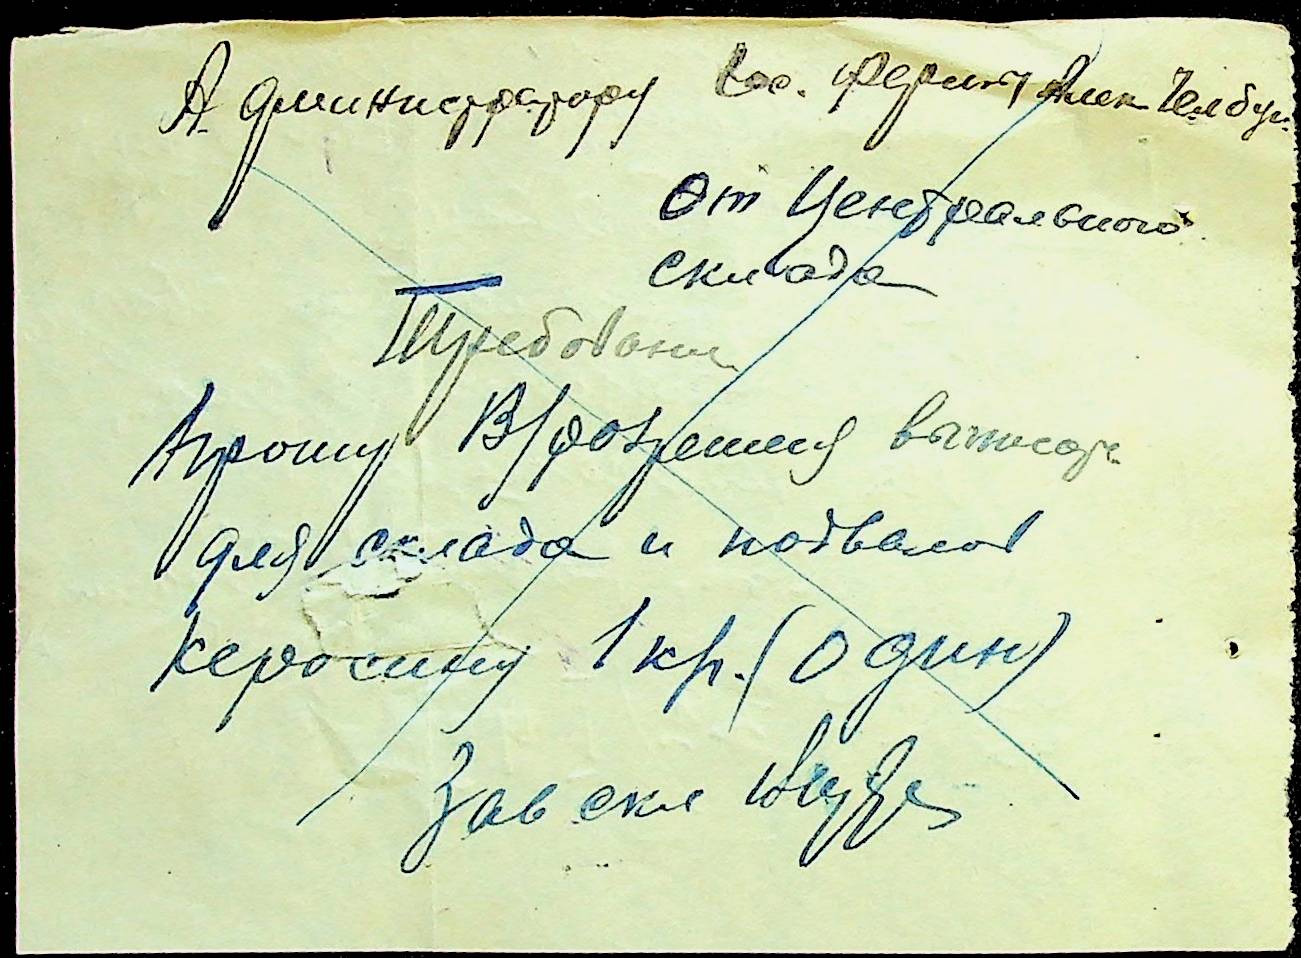 Администратору Гос. Фермы Алек Челбур.
От Центрального
склада
Требовани
Прошу В/розрешения выписат
для склада и подвалов
керосину 1 кр. (Один)
Зав скл